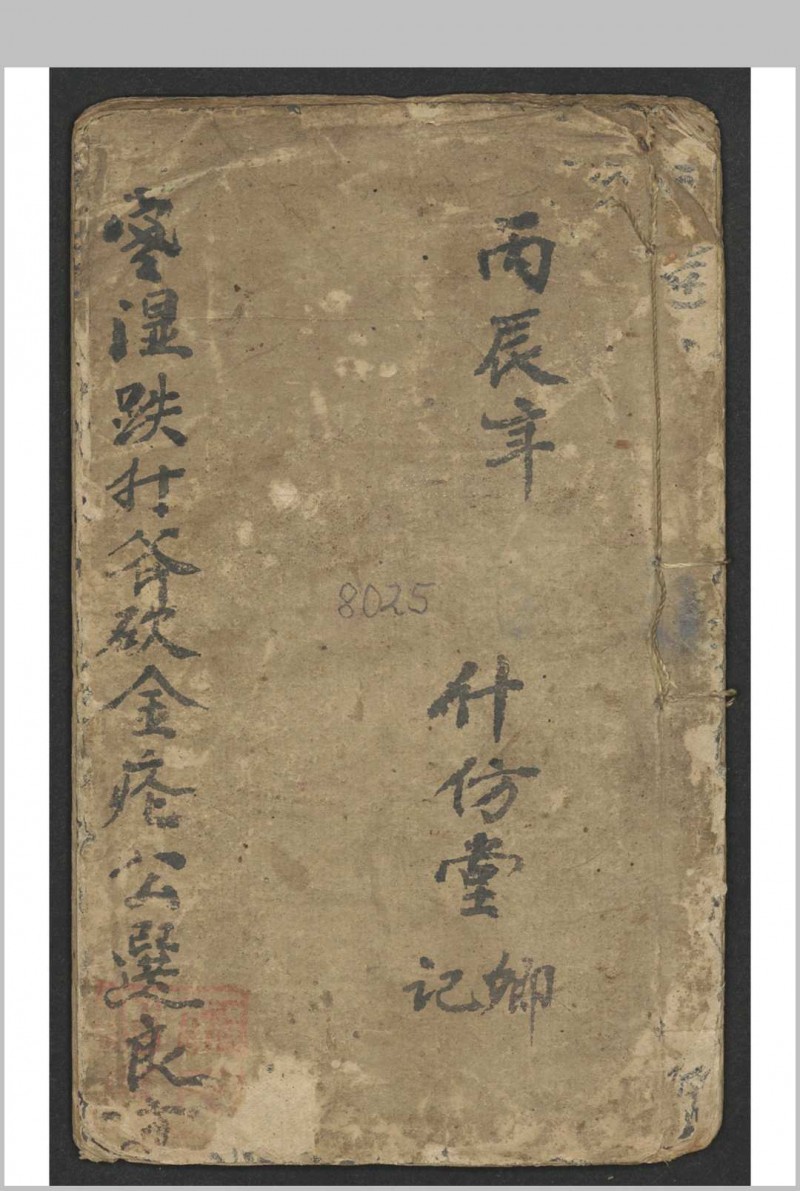 丙辰年
什仿堂
卿記
8025
寒湿跌打斧砍金瘡公選良方